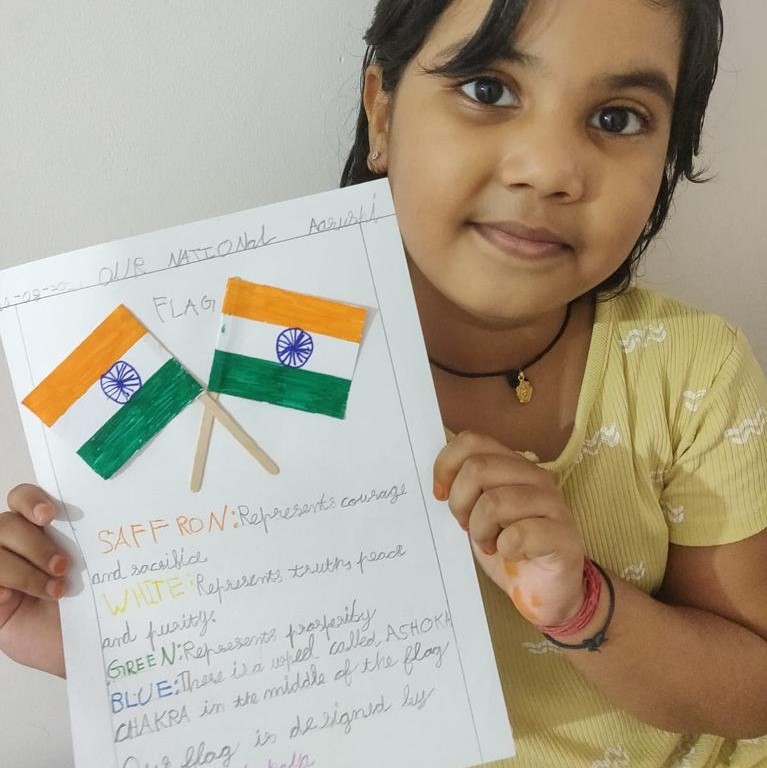 OUR NATIONAL Aarushi
FLAG
SAFFRON: Represents courage
and sacrifice
WHITE: Represents truth, peace
and purity.
GREEN: Represents prosperity
BLUE: There is a wheel called ASHOKA
CHAKRA in the middle of the flag
Our flag is designed by